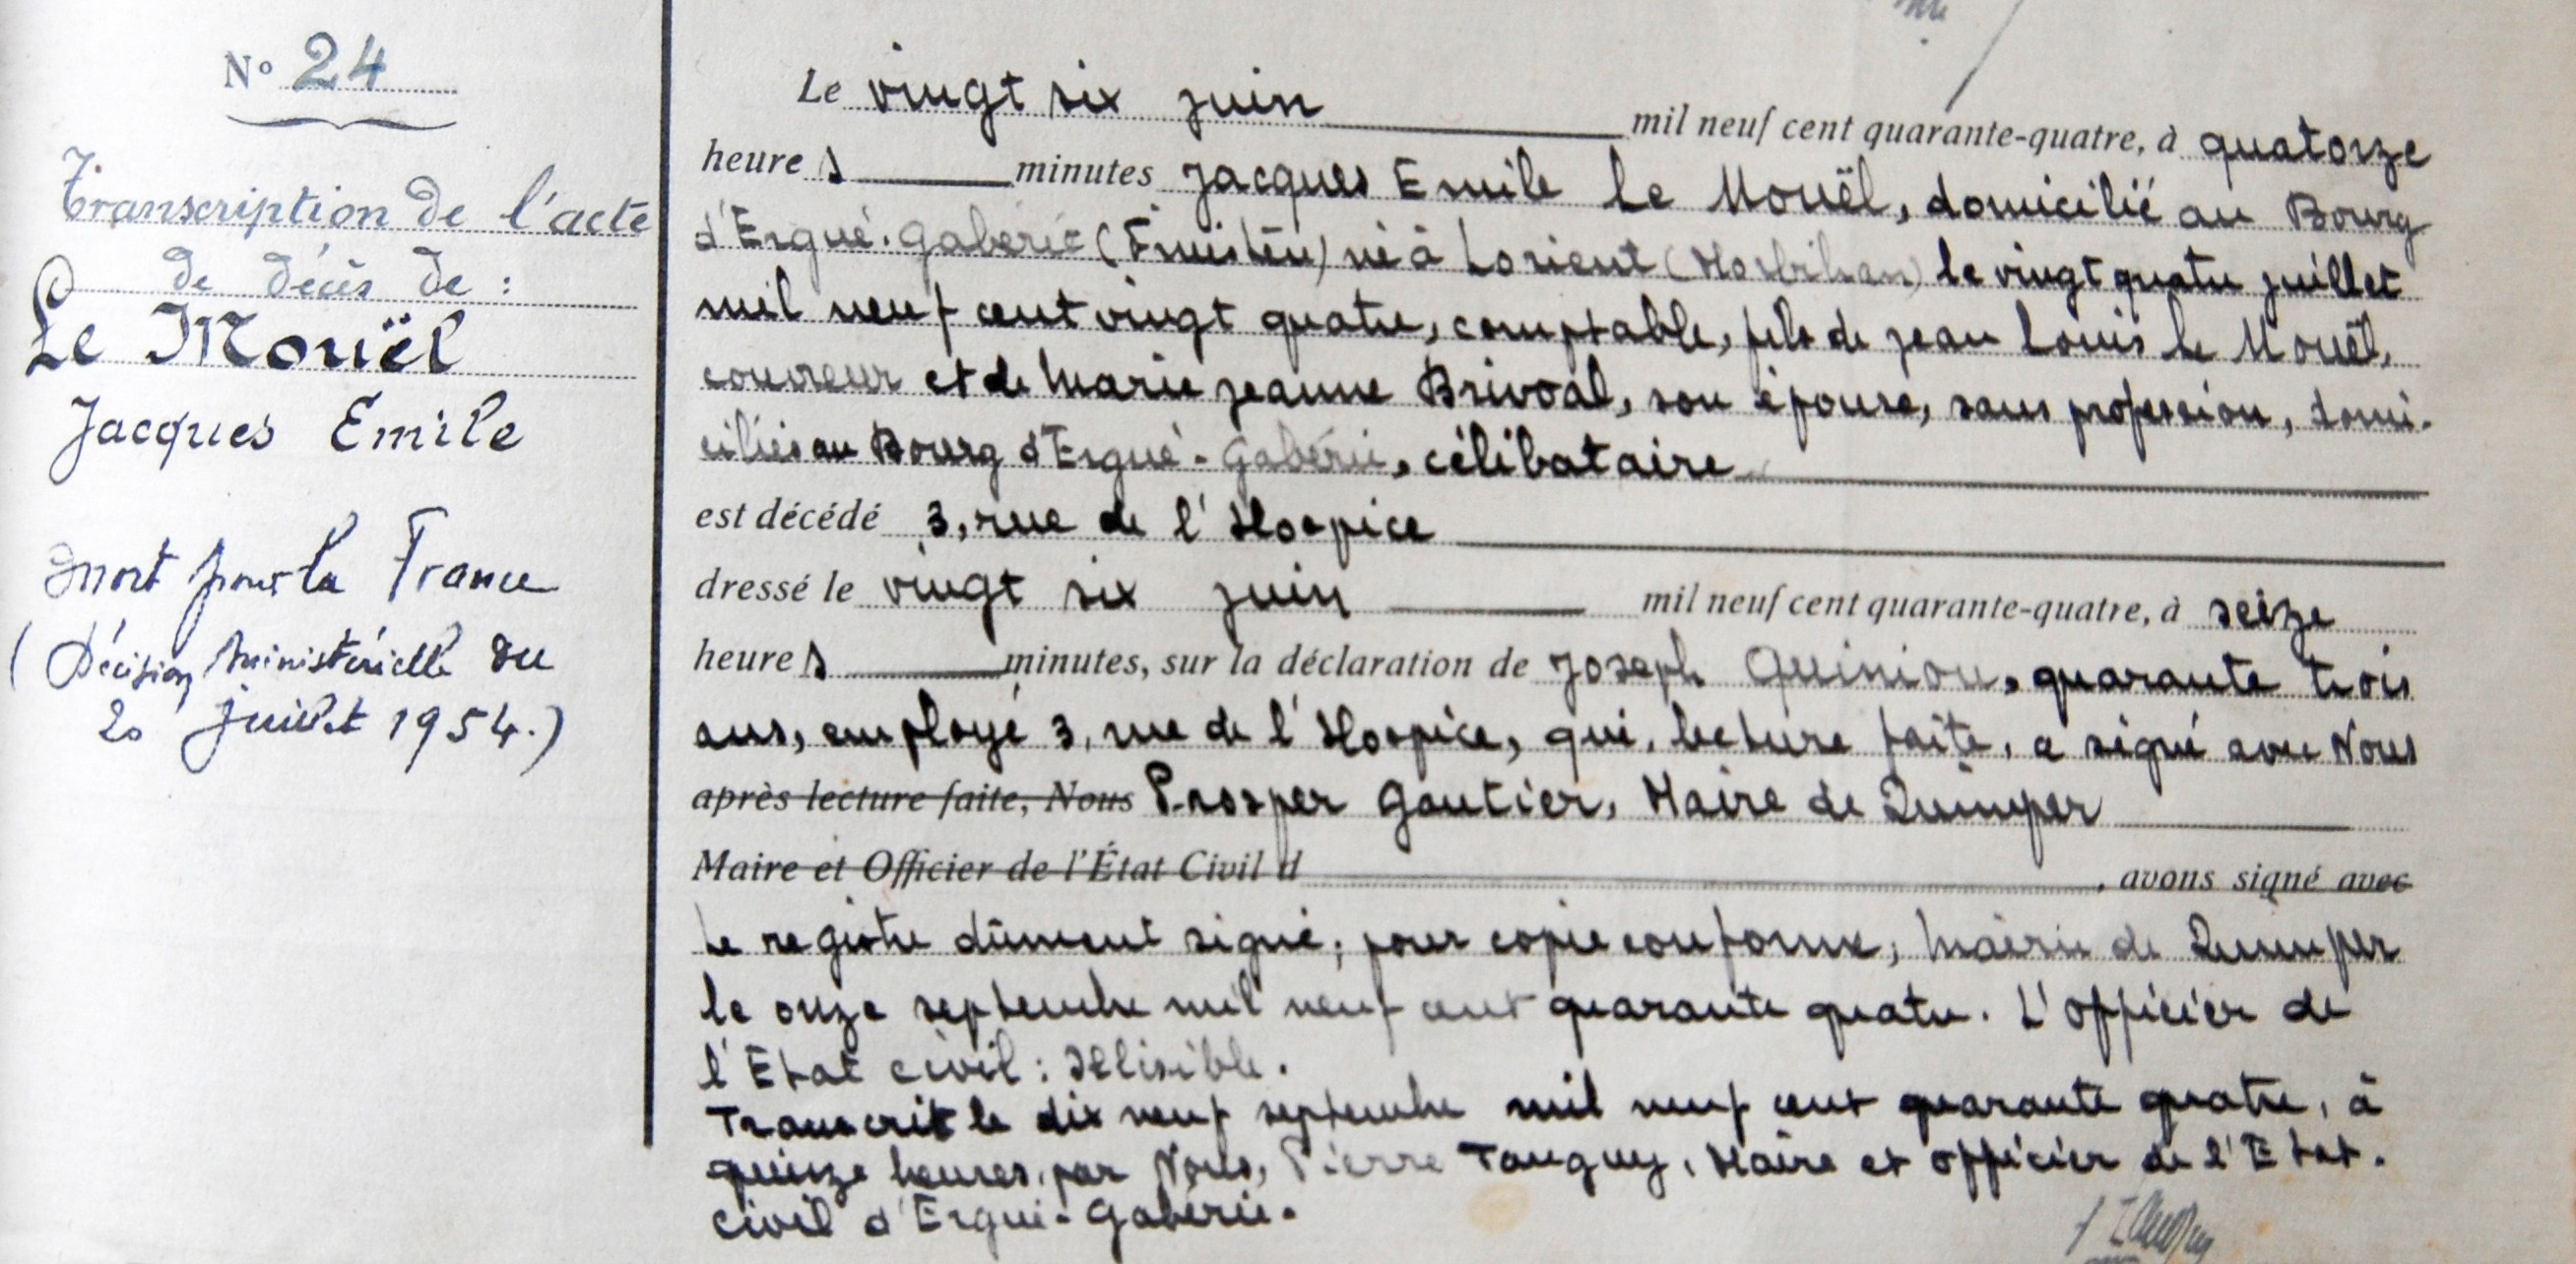 N° 24
Transcription de l'acte
de décès de :
Le Mouël
Jacques Emile
Mort pour la France
(Décision Ministérielle du
20 juillet 1954.)
Le vingt six juin mil neuf cent quarante-quatre, à quatorze
heures minutes Jacques Emile Le Mouël, domicilié au Bourg
d'Ergué-Gabéric (Finistère) né à Lorient (Morbihan) le vingt quatre juillet
mil neuf cent vingt quatre, comptable, fils de Jean Louis Le Mouël,
couvreur et de Marie Jeanne Brivoal, son épouse, sans profession, domi-
ciliés au Bourg d'Ergué-Gabéric, célibataire
est décédé 3, rue de l'Hospice
dressé le vingt six juin mil neuf cent quarante-quatre, à seize
heures minutes, sur la déclaration de Joseph Quiniou, quarante trois
ans, employé 3, rue de l'Hospice, qui, lecture faite, a signé avec Nous
après lecture faite, Nous Prosper Gautier, Maire de Quimper
Maire et Officier de l'État Civil d , avons signé avec
Le registre dûment signé; pour copie conforme, Mairie de Quimper
le onze septembre mil neuf cent quarante quatre. L'officier de
l'Etat civil : Illisible.
Transcrit le dix neuf septembre mil neuf cent quarante quatre, à
quinze heures, par Nous, Pierre Tanguy, Maire et officier de l'Etat-
civil d'Ergué-Gabéric.
P Tanguy